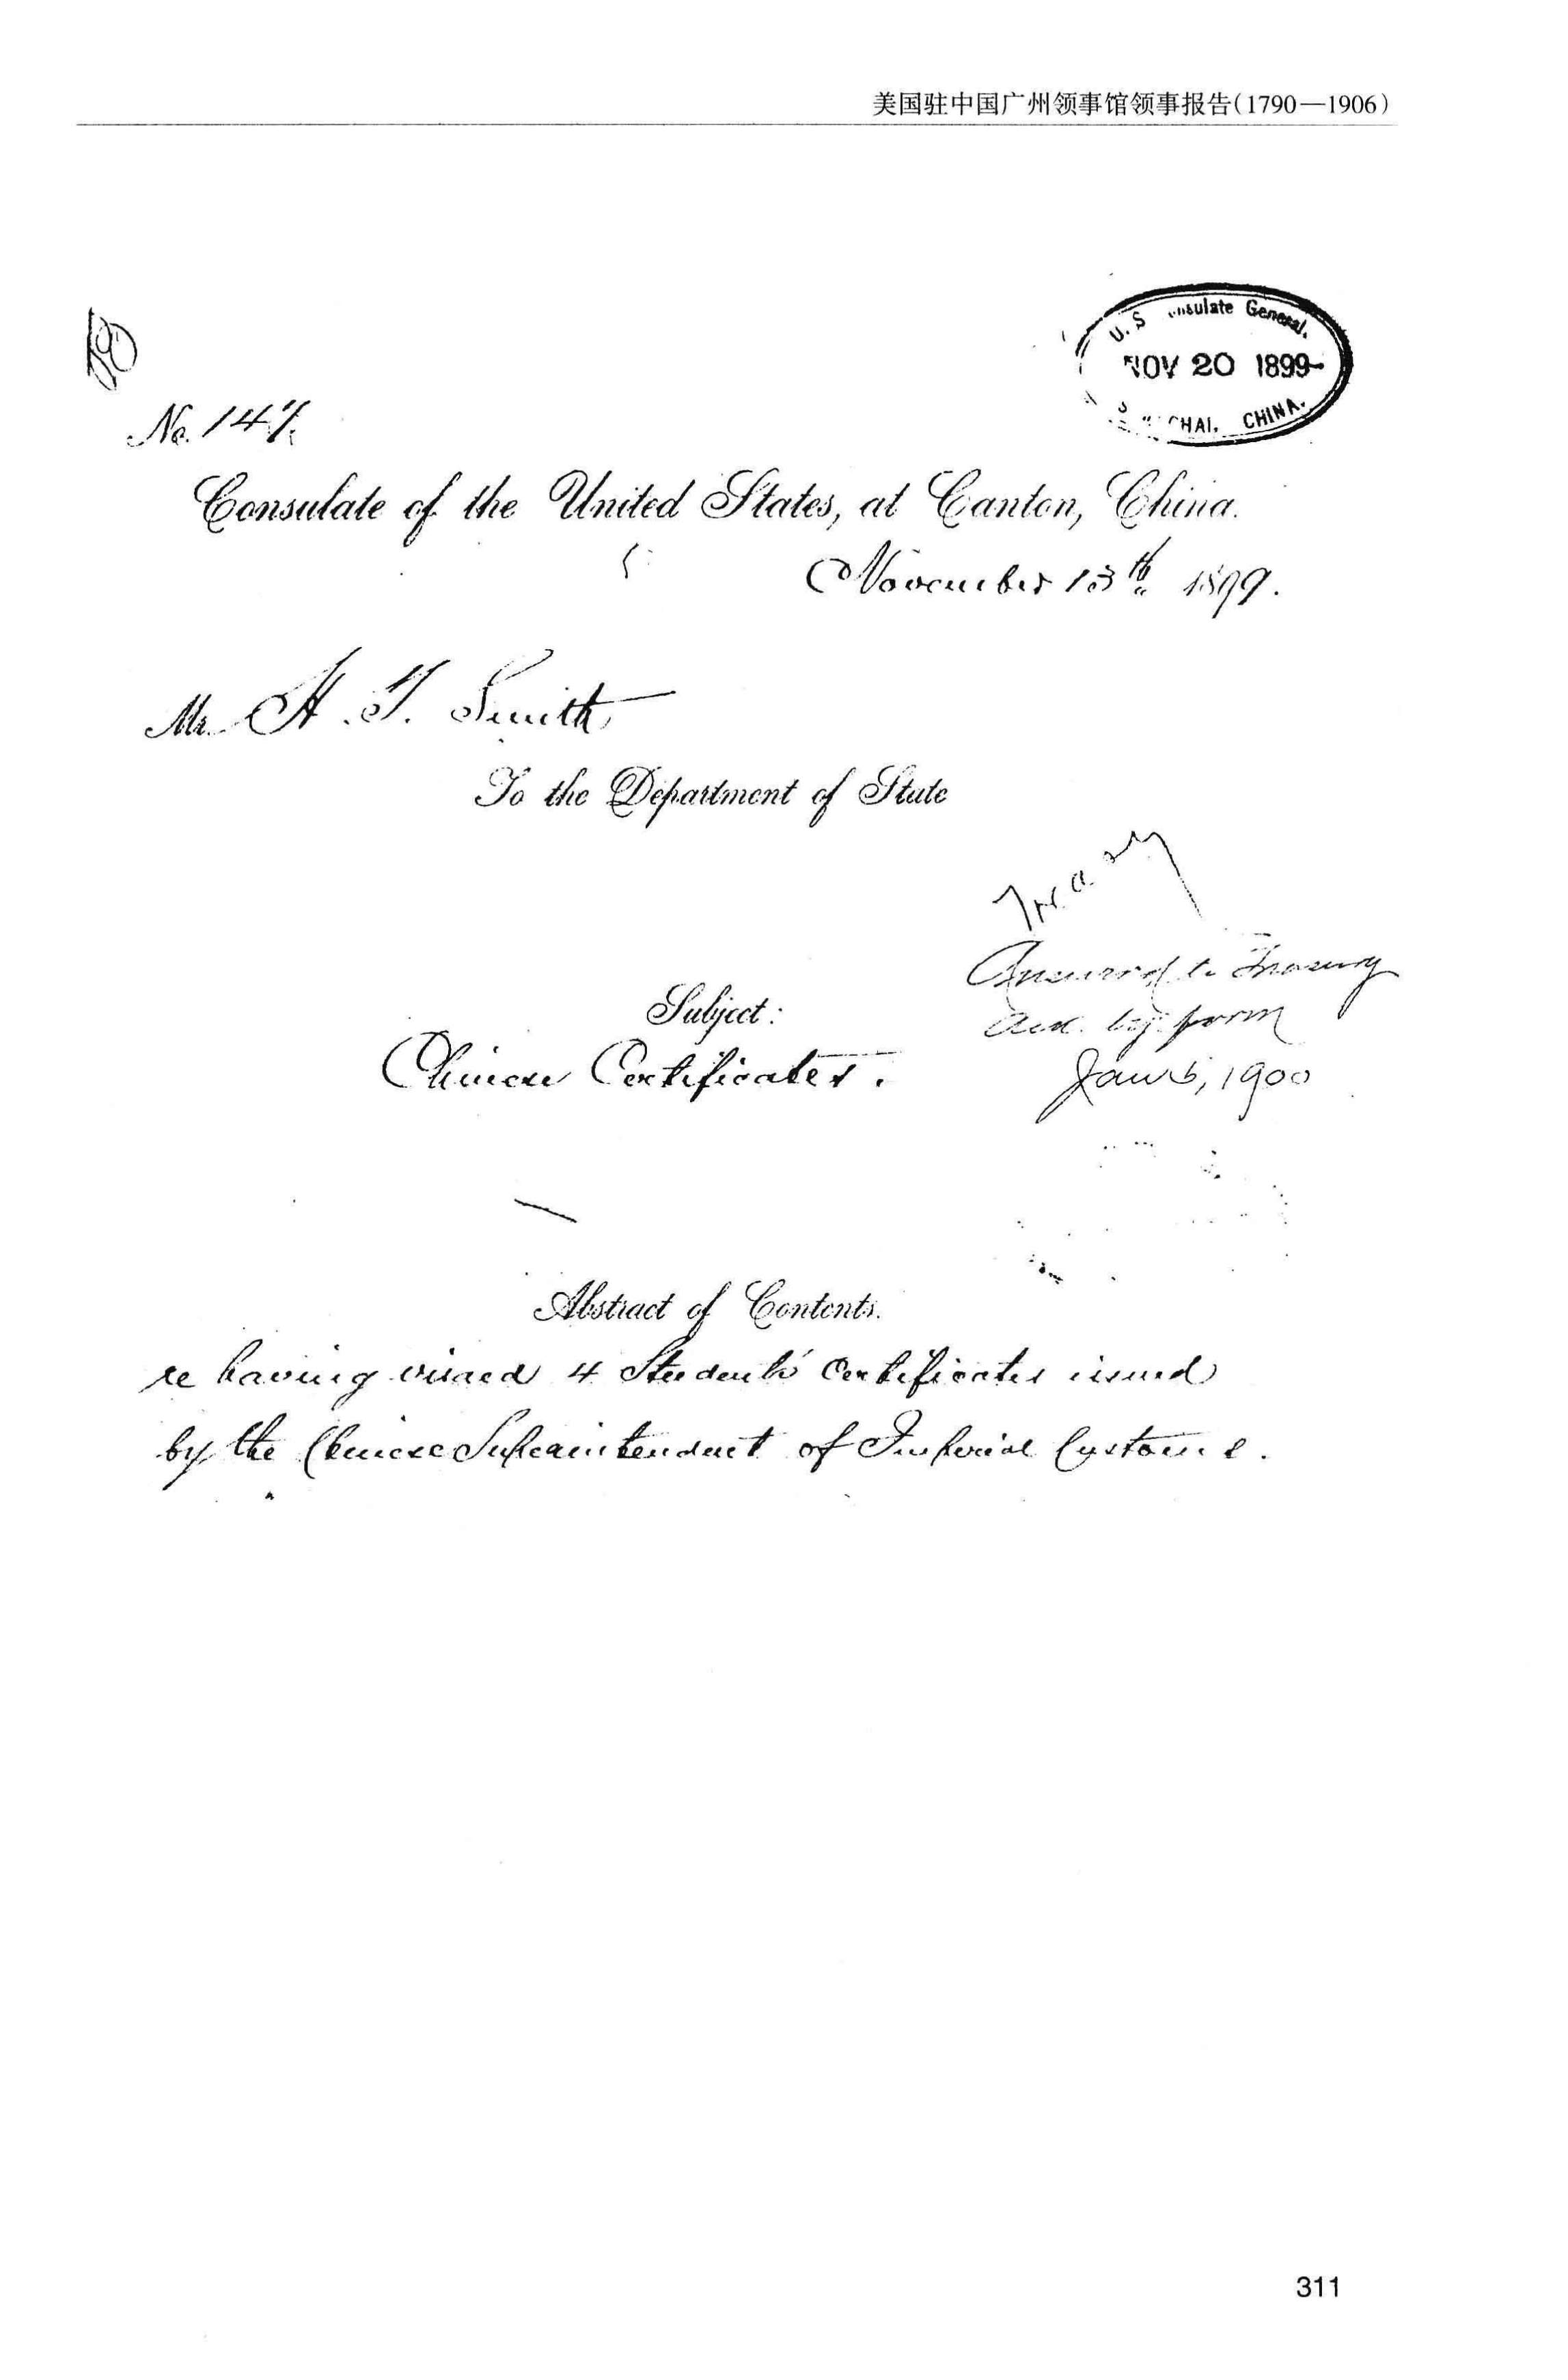 美国驻中国广州领事馆领事报告(1790—1906)
U. S. nsulate General,
NOV 20 1899
HAI, CHINA.
No. 147.
Consulate of the United States, at Canton, China.
November 13th 1899.
Mr. H. F. Smith
To the Department of State
Subject:
Answered to Treasury
Ack. by form
Chinese Certificates.
Jan 5, 1900
Abstract of Contents.
re having visaed 4 Students' Certificates issued
by the Chinese Superintendent of Imperial Customs.
311